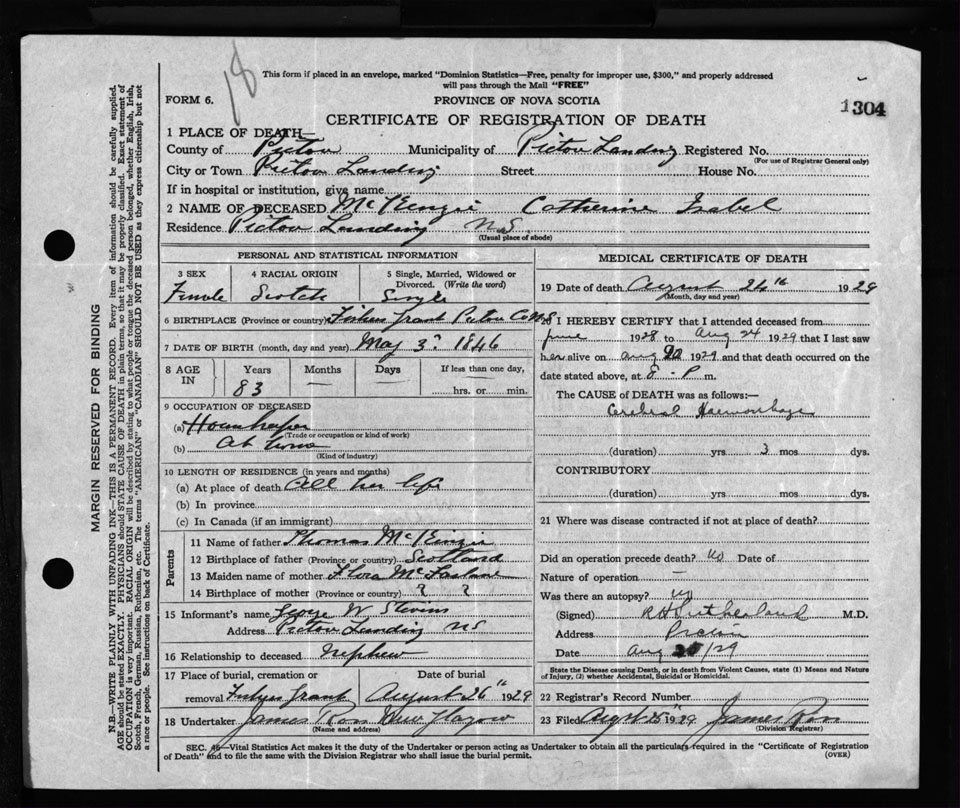 18
This form if placed in an envelope, marked "Dominion Statistics—Free, penalty for improper use, $300," and properly addressed
will pass through the Mail "FREE"
FORM 6.
PROVINCE OF NOVA SCOTIA
1304
CERTIFICATE OF REGISTRATION OF DEATH
1 PLACE OF DEATH—
County of Pictou Municipality of Pictou Landing Registered No.
(For use of Registrar General only)
City or Town Pictou Landing Street House No.
If in hospital or institution, give name
2 NAME OF DECEASED McKenzie Catherine Isabel
Residence Pictou Landing N.S.
(Usual place of abode)
PERSONAL AND STATISTICAL INFORMATION
3 SEX 4 RACIAL ORIGIN 5 Single, Married, Widowed or
Divorced. (Write the word)
Female Scotch Single
6 BIRTHPLACE (Province or country) Fishers Grant Pictou Co N.S
7 DATE OF BIRTH (month, day and year) May 3 1846
8 AGE IN Years Months Days If less than one day,
83 — — hrs. or min.
9 OCCUPATION OF DECEASED
(a) Housekeeper
(Trade or occupation or kind of work)
(b) At home
(Kind of industry)
10 LENGTH OF RESIDENCE (in years and months)
(a) At place of death All her life
(b) In province
(c) In Canada (if an immigrant)
Parents
11 Name of father Thomas McKenzie
12 Birthplace of father (Province or country) Scotland
13 Maiden name of mother Flora
14 Birthplace of mother (Province or country) ? ?
15 Informant's name George W Stevens
Address Pictou Landing N S
16 Relationship to deceased Nephew
17 Place of burial, cremation or Date of burial
removal Fishers Grant August 26th 1929
18 Undertaker James Ross New Glasgow
(Name and address)
MEDICAL CERTIFICATE OF DEATH
19 Date of death August 24th 1929
(Month, day and year)
20 I HEREBY CERTIFY that I attended deceased from
June 1928 to Aug 24 1929 that I last saw
her alive on Aug 20 1929 and that death occurred on the
date stated above, at 8 - P m.
The CAUSE of DEATH was as follows:—
Cerebral Haemorrhage
(duration) yrs 3 mos dys.
CONTRIBUTORY
(duration) yrs mos dys.
21 Where was disease contracted if not at place of death?
Did an operation precede death? No Date of
Nature of operation —
Was there an autopsy? No
(Signed) R H Sutherland M.D.
Address Pictou
Date Aug /29
State the Disease causing Death, or in death from Violent Causes, state (1) Means and Nature
of Injury, (2) whether Accidental, Suicidal or Homicidal.
22 Registrar's Record Number
23 Filed 1929 James Ross
(Division Registrar)
SEC. —Vital Statistics Act makes it the duty of the Undertaker or person acting as Undertaker to obtain all the particulars required in the "Certificate of Registration
of Death" and to file the same with the Division Registrar who shall issue the burial permit.
(OVER)
MARGIN RESERVED FOR BINDING
N.B.—WRITE PLAINLY WITH UNFADING INK—THIS IS A PERMANENT RECORD. Every item of information should be carefully supplied.
AGE should be stated EXACTLY. PHYSICIANS should STATE CAUSE OF DEATH in plain terms, so that it may be properly classified. Exact statement of
OCCUPATION is very important. RACIAL ORIGIN will be described by stating to what people or tongue the deceased person belonged, whether English, Irish,
Scotch, French, German, Russian, Ruthenian, etc. The terms "AMERICAN" or "CANADIAN" SHOULD NOT BE USED as they express citizenship but not
a race or people. See instructions on back of Certificate.